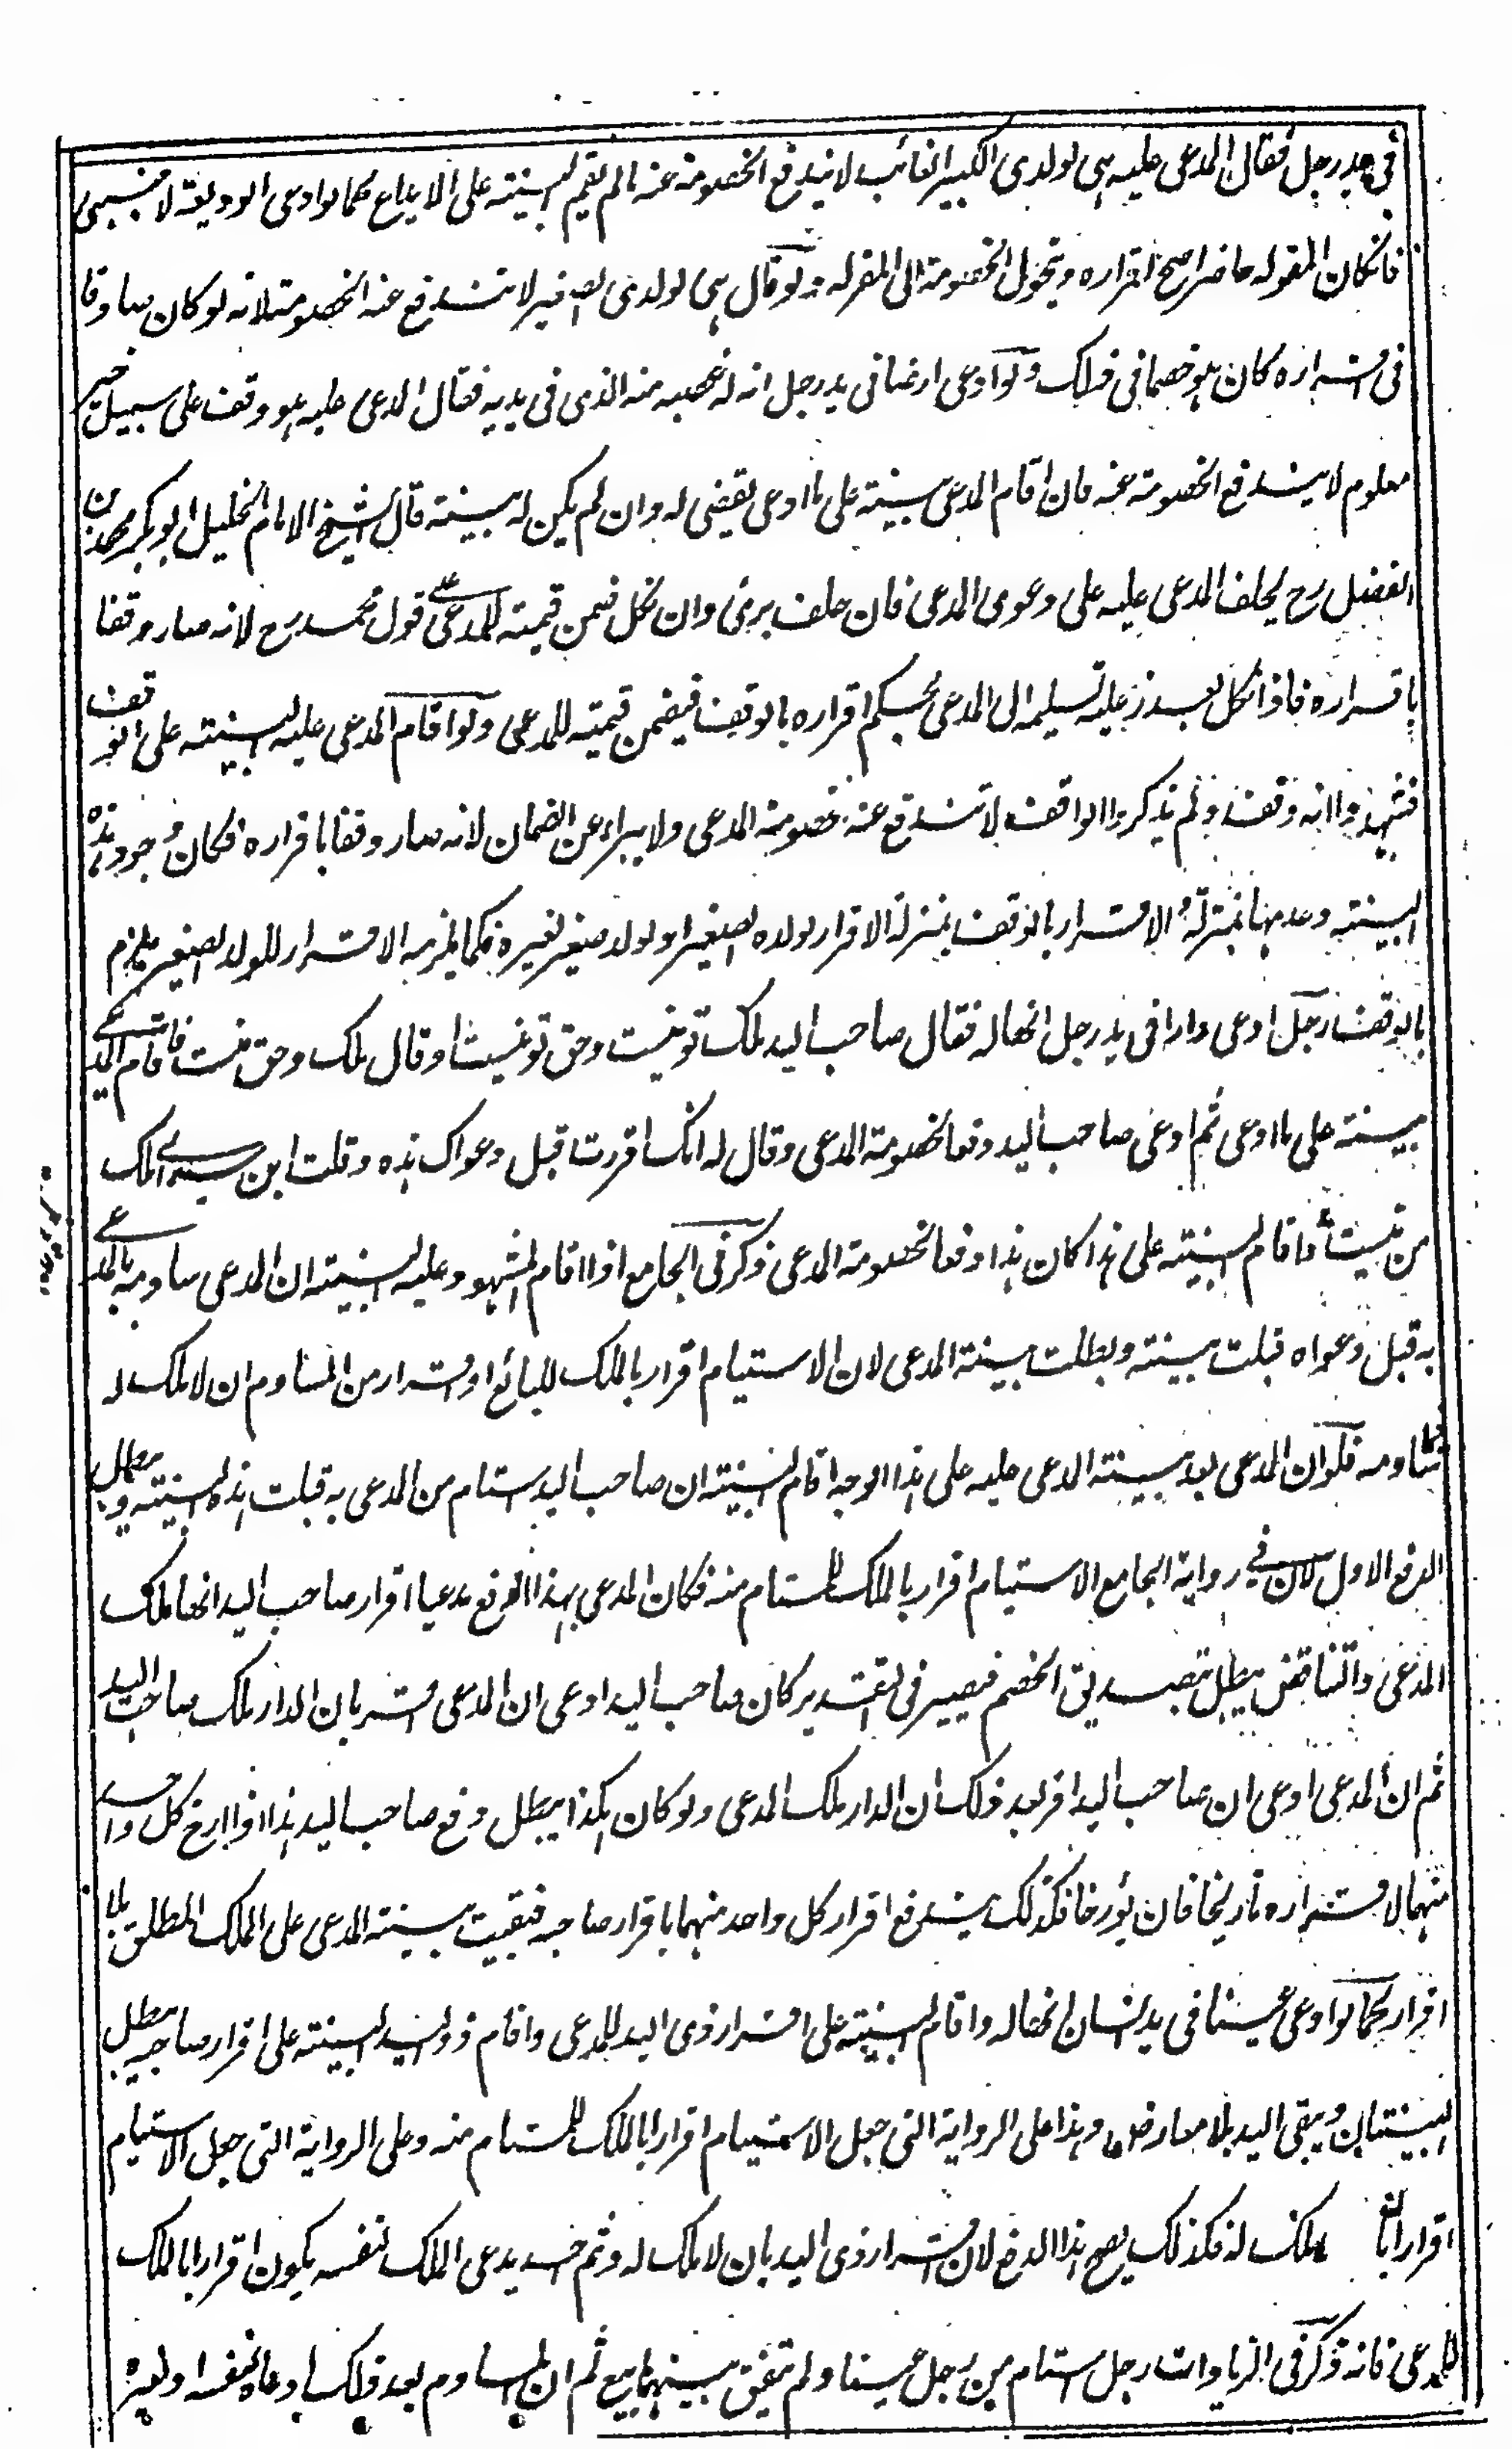 فى يد رجل فقال المدعى عليه هى لولدى الكبير الغائب لا يندفع الخصومة عنه ما لم يقيم البينة على الايداع كما لو ادعى الوديعة لاجنبى
فانكان المقر له حاضرا صح اقراره ويتحول الخصومة الى المقر له ولو قال هى لولدى الصغير لا تندفع عنه الخصومة لانه لو كان صادقا
فى اقراره كان هو خصما فى ذلك ولو ادعى ارضا فى يد رجل انه له غصبه منه الذى فى يديه فقال المدعى عليه هو وقف على سبيل خير
معلوم لا يندفع الخصومة عنه فان اقام المدعى بينة على ما ادعى يقضى له وان لم يكن له بينة قال الشيخ الامام الجليل ابو بكر محمد بن
الفضل رح يحلف المدعى عليه على دعوى المدعى فان حلف برئ وان نكل ضمن قيمته للمدعى على قول محمد رح لانه صار وقفا
باقراره فاذا نكل تعذر عليه تسليمه الى المدعى بحكم اقراره بالوقف فيضمن قيمته للمدعى ولو اقام المدعى عليه البينة على الوقف
فشهدوا انه وقف ولم يذكروا الواقف لا تندفع عنه خصومة المدعى ولا يبراء عن الضمان لانه صار وقفا باقراره فكان وجود هذه
البينة وعدمها بمنزلة والاقرار بالوقف بمنزلة الاقرار لولده الصغير او لولد صغير لغيره فكما يلزمه الاقرار للولد الصغير يلزم
بالوقف رجل ادعى دارا فى يد رجل انها له فقال صاحب اليد ملك تو نيست وحق تو نيست او قال ملك وحق منست فاقام المدعى
بينة على ما ادعى ثم ادعى صاحب اليد دفعا لخصومة المدعى وقال له انك اقررت قبل دعواك هذه وقلت اين سراى ملك
من نيست واقام البينة على هذا كان هذا دفعا لخصومة المدعى ذكر فى الجامع اذا اقام المشهود عليه البينة ان المدعى ساومه بالمدعى
به قبل دعواه قبلت بينته وبطلت بينة المدعى لان الاستيام اقرار بالملك للبائع او اقرار من المساوم ان لا ملك له
فيما ساومه فلو ان المدعى بعد بينة المدعى عليه على هذا الوجه اقام البينة ان صاحب اليد ستام من المدعى به قبلت هذه البينة ويبطل
الدفع الاول لان فى رواية الجامع الاستيام اقرار بالملك للمستام منه فكان المدعى بهذا الدفع مدعيا اقرار صاحب اليد انها ملك
المدعى والتناقض يبطل بتصديق الخصم فيصير فى التقدير كان صاحب اليد ادعى ان المدعى اقر بان الدار ملك صاحب اليد
ثم ان المدعى ادعى ان صاحب اليد اقر بعد ذلك ان الدار ملك المدعى ولو كان هكذا يبطل دفع صاحب اليد هذا اذا ارخ كل واحد
منهما لاقراره تاريخا فان لم يؤرخا فكذلك يندفع اقرار كل واحد منهما باقرار صاحبه فبقيت بينة المدعى على الملك المطلق بلا
اقرار كما لو ادعى عينا فى يد انسان انها له واقام البينة على اقرار ذى اليد للمدعى واقام ذو اليد البينة على اقرار صاحبه يبطل
البينتان ويبقى اليد بلا معارض وهذا على الرواية التى جعل الاستيام اقرارا بالملك للمستام منه وعلى الرواية التى جعل الاستيام
اقرارا بان لا ملك له فكذلك يصح هذا الدفع لان اقرار ذى اليد بان لا ملك له وثم احد يدعى الملك لنفسه يكون اقرارا بالملك
للمدعى فانه ذكر فى الزيادات رجل استام من رجل عينا ولم يتفق بينهما بيع ثم ان المساوم بعد ذلك ادعاه لنفسه او لغيره